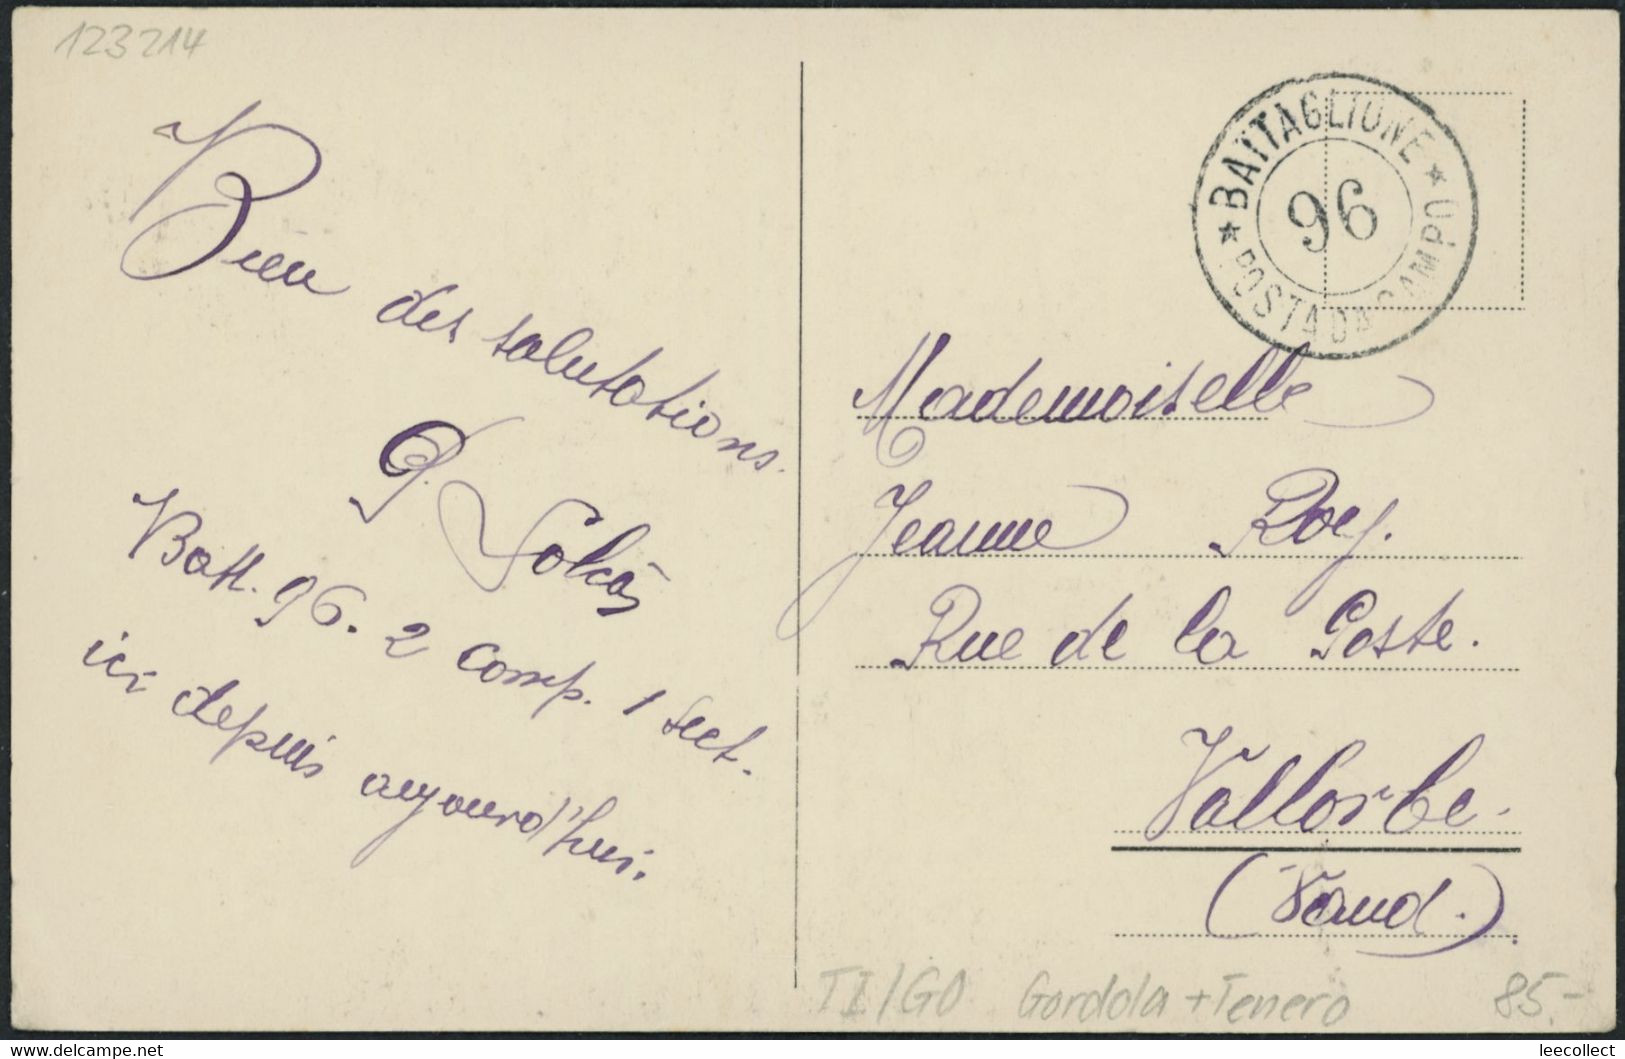 123214
Bien des salutations.
Batt. 96. 2 comp. 1 sect.
ici depuis aujourd'hui.
★ BATTAGLIONE ★
96
POSTA DA CAMPO
Mademoiselle
Jeanne Roy.
Rue de la Poste.
Vallorbe.
(Vaud.)
TI/GO Gordola + Tenero 85.-
leecollect